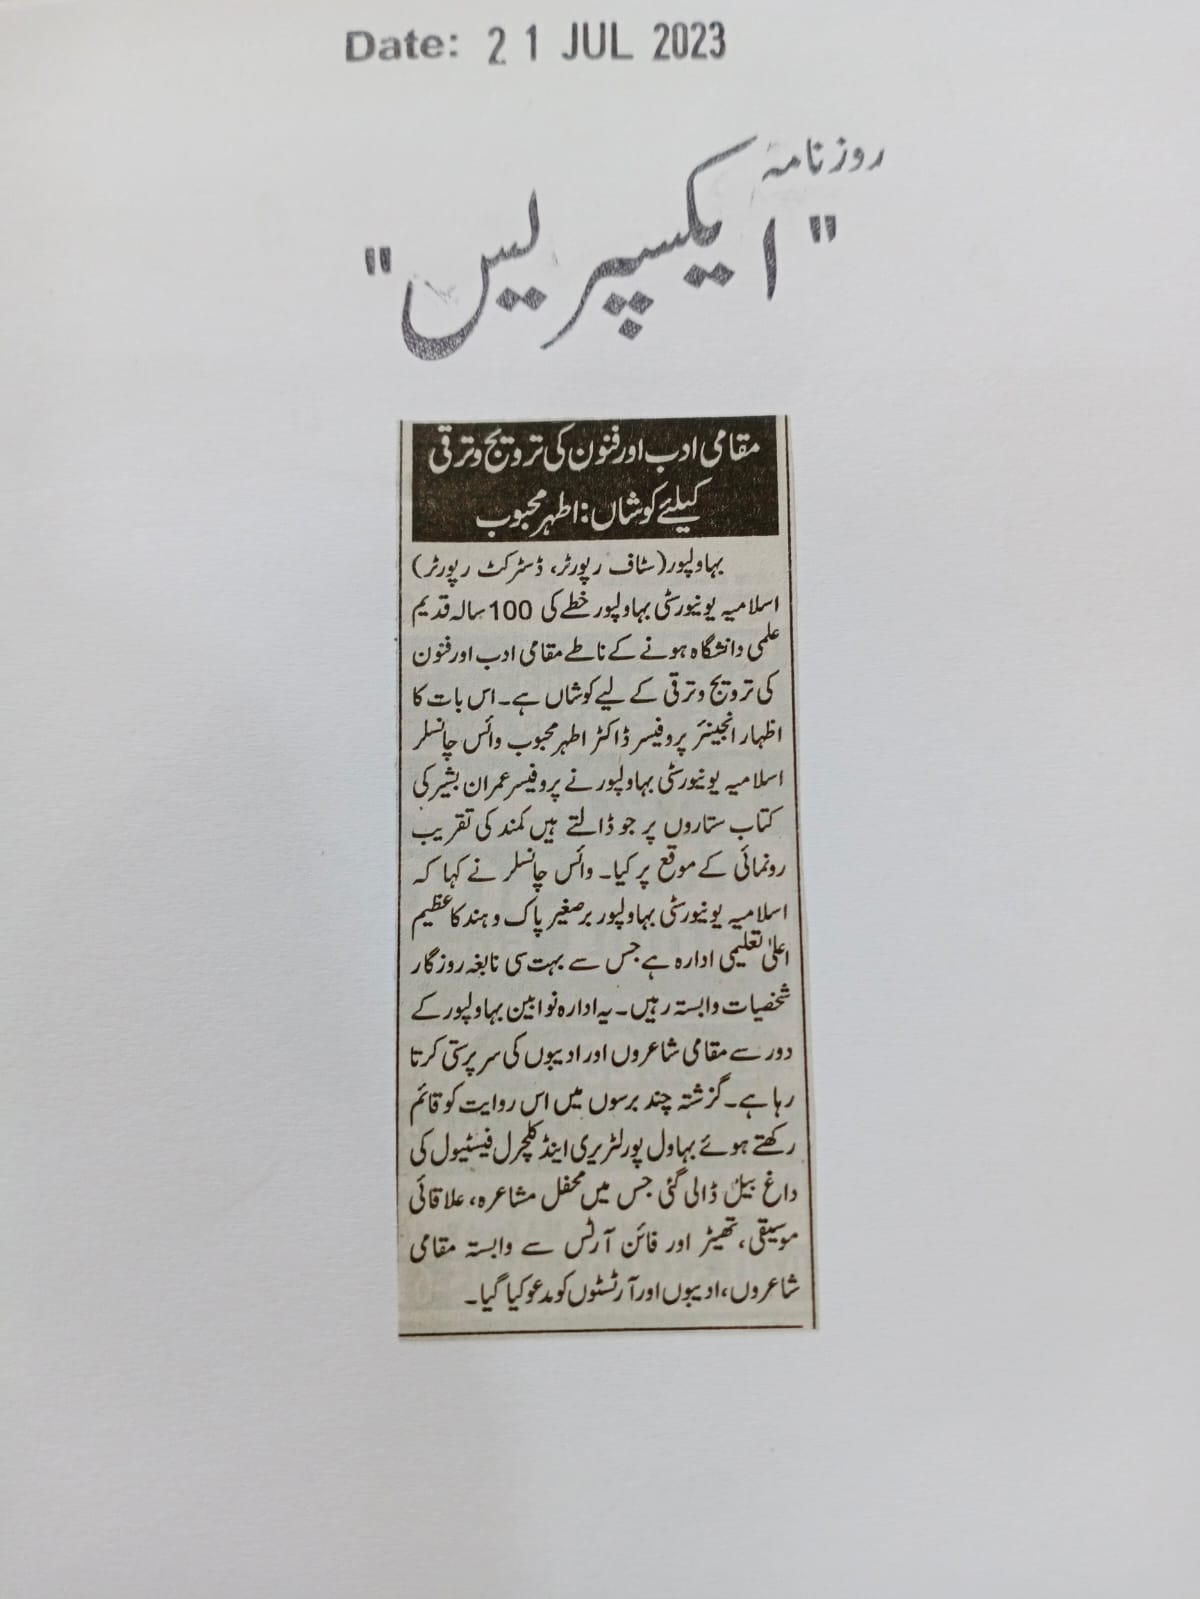 Date: 21 JUL 2023
روزنامہ
"ایکسپریس"
مقامی ادب اور فنون کی ترویج و ترقی
کیلئے کوشاں: اطہر محبوب
بہاولپور (سٹاف رپورٹر، ڈسٹرکٹ رپورٹر)
اسلامیہ یونیورسٹی بہاولپور خطے کی 100 سالہ قدیم
علمی دانشگاہ ہونے کے ناطے مقامی ادب اور فنون
کی ترویج و ترقی کے لیے کوشاں ہے۔ اس بات کا
اظہار انجینئر پروفیسر ڈاکٹر اطہر محبوب وائس چانسلر
اسلامیہ یونیورسٹی بہاولپور نے پروفیسر عمران بشیر کی
کتاب ستاروں پر جو ڈالتے ہیں کمند کی تقریب
رونمائی کے موقع پر کیا۔ وائس چانسلر نے کہا کہ
اسلامیہ یونیورسٹی بہاولپور برصغیر پاک و ہند کا عظیم
اعلیٰ تعلیمی ادارہ ہے جس سے بہت سی نابغہ روزگار
شخصیات وابستہ رہیں۔ یہ ادارہ نوابین بہاولپور کے
دور سے مقامی شاعروں اور ادیبوں کی سرپرستی کرتا
رہا ہے۔ گزشتہ چند برسوں میں اس روایت کو قائم
رکھتے ہوئے بہاول پور لٹریری اینڈ کلچرل فیسٹیول کی
داغ بیل ڈالی گئی جس میں محفل مشاعرہ، علاقائی
موسیقی، تھیٹر اور فائن آرٹس سے وابستہ مقامی
شاعروں، ادیبوں اور آرٹسٹوں کو مدعو کیا گیا۔